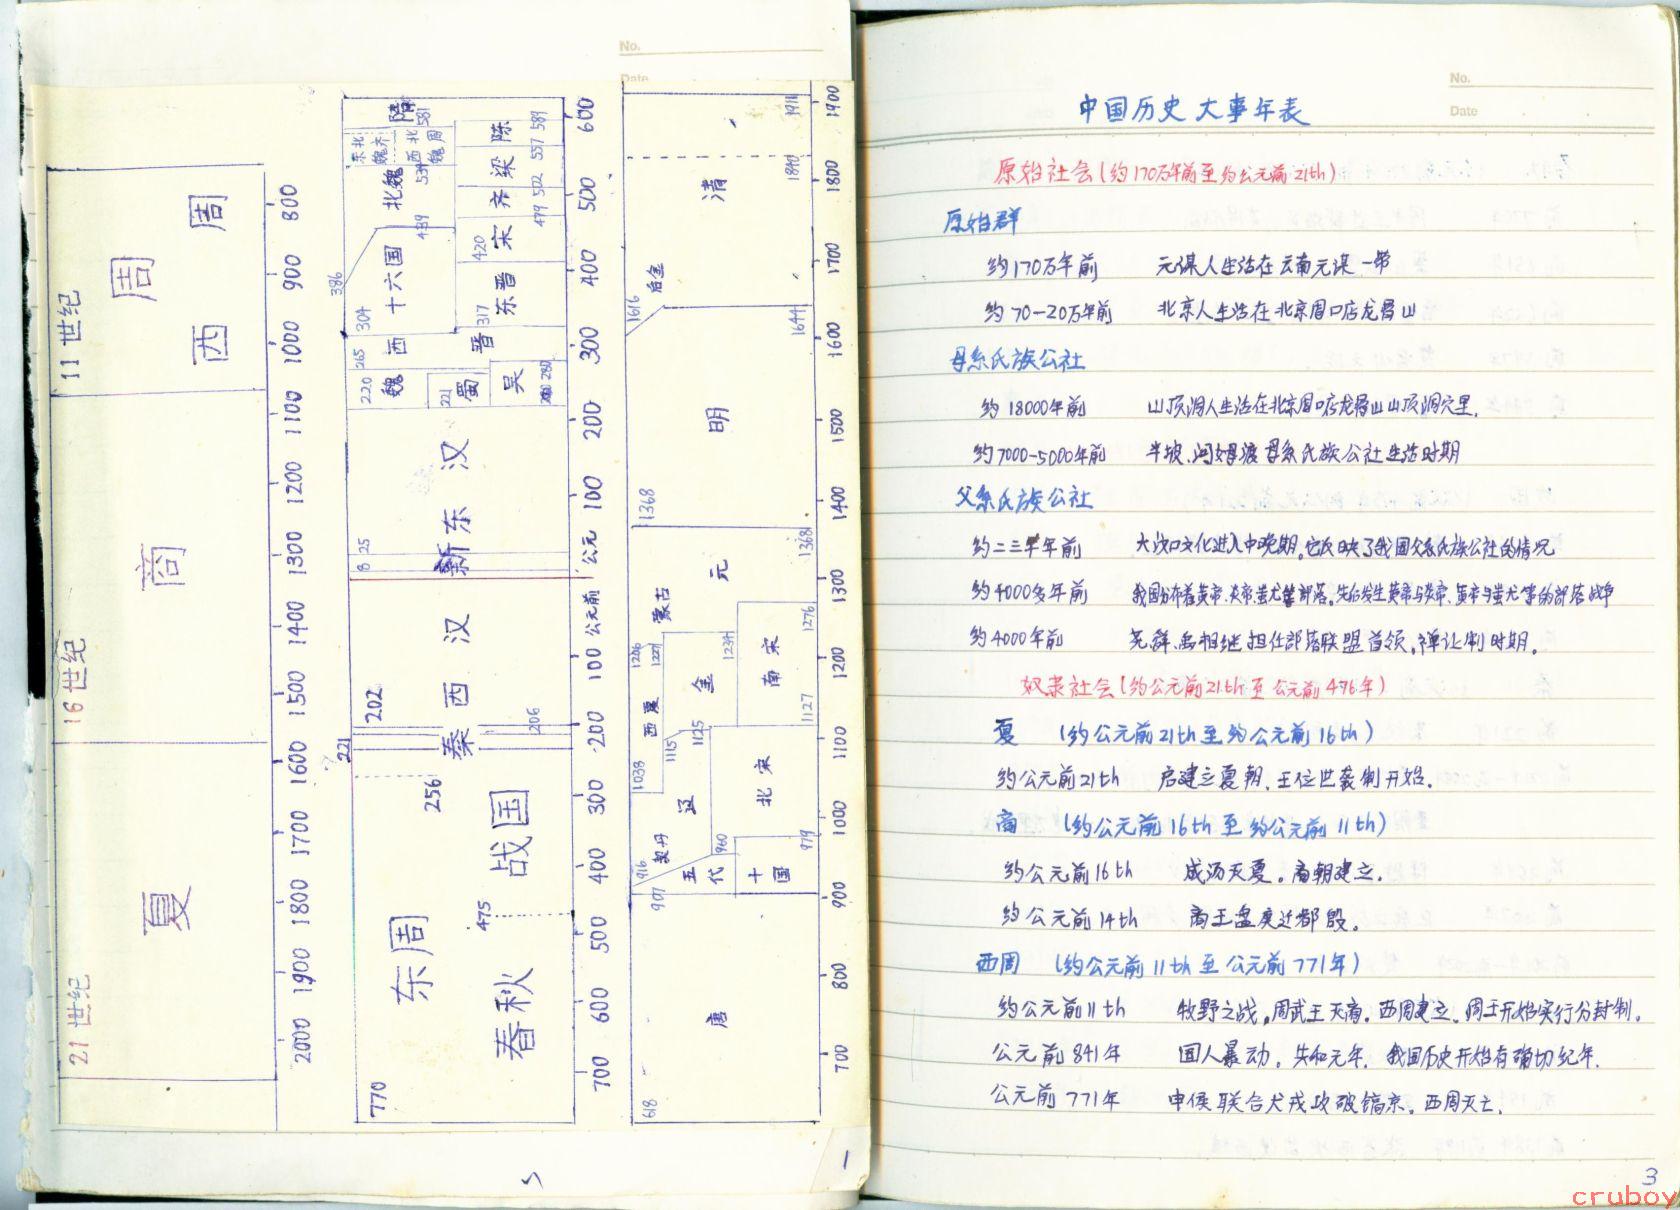 No.
Date
21世纪
16世纪
11世纪
夏
商
西周
周
2000 1900 1800 1700 1600 1500 1400 1300 1200 1100 1000 900 800
770
东周
春秋
475
战国
256
221
秦
206
202
西汉
8
25
新
东汉
220
魏
221
蜀
吴
280
265
西晋
304
386
十六国
317
东晋
420
439
北魏
534
东魏
北齐
西魏
北周
581
隋
宋
479
齐
502
梁
557
陈
589
700 600 500 400 300 200 100 公元前 公元 100 200 300 400 500 600
618
唐
907
五代
十国
979
916
契丹
辽
960
北宋
1038
西夏
1115
1125
1127
金
南宋
1206
1227
1234
1276
蒙古
元
1368
1368
明
1616
后金
1644
清
1840
1911
700 800 900 1000 1100 1200 1300 1400 1500 1600 1700 1800 1900
No.
Date
1
No.
Date
中国历史大事年表
原始社会(约170万年前至约公元前21th)
原始群
约170万年前 元谋人生活在云南元谋一带
约70-20万年前 北京人生活在北京周口店龙骨山
母系氏族公社
约18000年前 山顶洞人生活在北京周口店龙骨山山顶洞穴里.
约7000-5000年前 半坡、河姆渡母系氏族公社生活时期
父系氏族公社
约二三千年前 大汶口文化进入中晚期。它反映了我国父系氏族公社的情况
约4000多年前 我国分布着黄帝、炎帝、蚩尤等部落。先后发生黄帝与炎帝、黄帝与蚩尤等的部落战争
约4000年前 尧舜禹相继担任部落联盟首领。禅让制时期。
奴隶社会(约公元前21th至公元前476年)
夏 (约公元前21th至约公元前16th)
约公元前21th 启建立夏朝.王位世袭制开始.
商 (约公元前16th至约公元前11th)
约公元前16th 成汤灭夏。商朝建立.
约公元前14th 商王盘庚迁都殷。
西周 (约公元前11th至公元前771年)
约公元前11th 牧野之战。周武王灭商。西周建立。周王开始实行分封制.
公元前841年 国人暴动.共和元年.我国历史开始有确切纪年.
公元前771年 申侯联合犬戎攻破镐京。西周灭亡.
3
cruboy